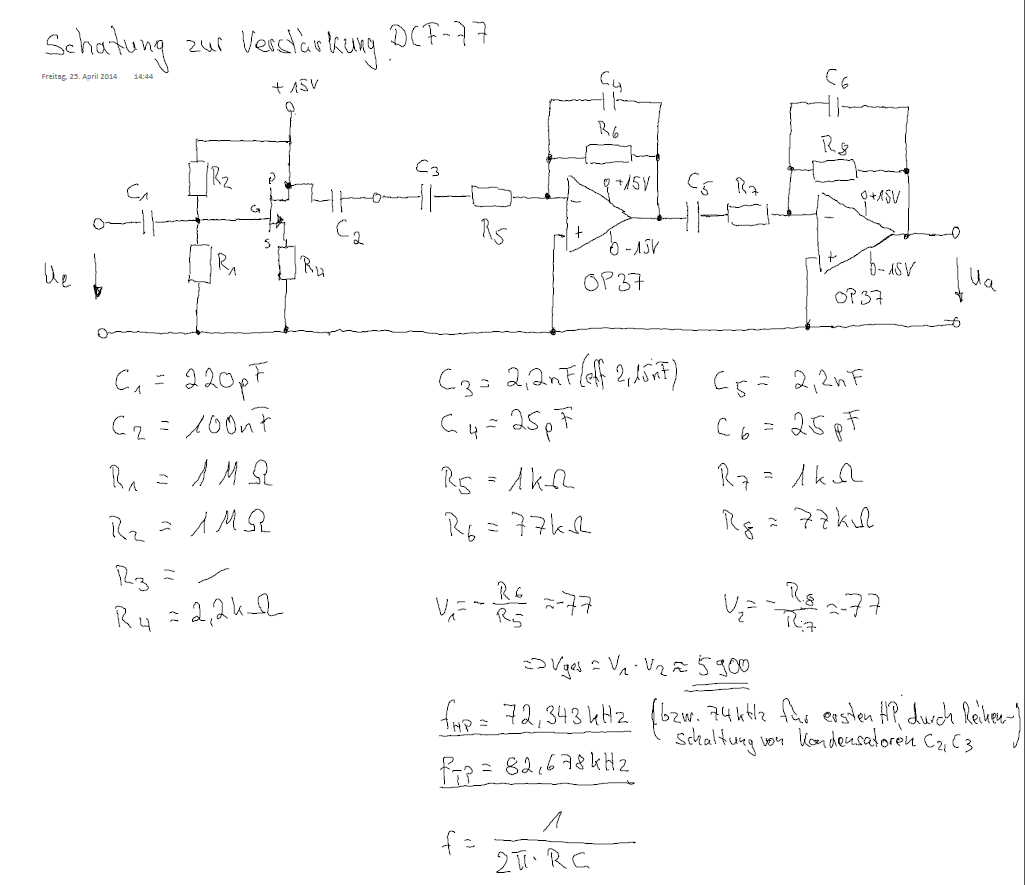 Schatung zur Verstärkung DCF-77
Freitag, 25. April 2014 14:44
+15V
C4
C6
R6
R8
R2
D
+15V
+15V
C1
C3
C5
R7
G
-
-
S
C2
R5
+
+
R1
R4
-15V
-15V
Ue
OP37
OP37
Ua
C1 = 220pF
C2 = 100nF
R1 = 1MΩ
R2 = 1MΩ
R3 = –
R4 = 2,2kΩ
C3 = 2,2nF (eff 2,15nF)
C4 = 25pF
R5 = 1kΩ
R6 = 77kΩ
V1 = - R6/R5 ≈ -77
C5 = 2,2nF
C6 = 25pF
R7 = 1kΩ
R8 = 77kΩ
V2 = - R8/R7 ≈ -77
=> Vges = V1 · V2 ≈ 5900
fHP = 72,343kHz (bzw. 74kHz für ersten HP, durch Reihen-
schaltung von Kondensatoren C2, C3
fTP = 82,678kHz
f = 1/2π·RC